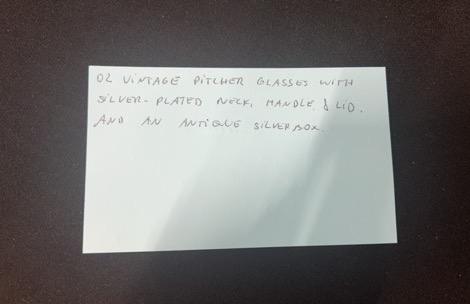 02 VINTAGE PITCHER GLASSES WITH
SILVER-PLATED NECK, HANDLE & LID.
AND AN ANTIQUE SILVER BOX.